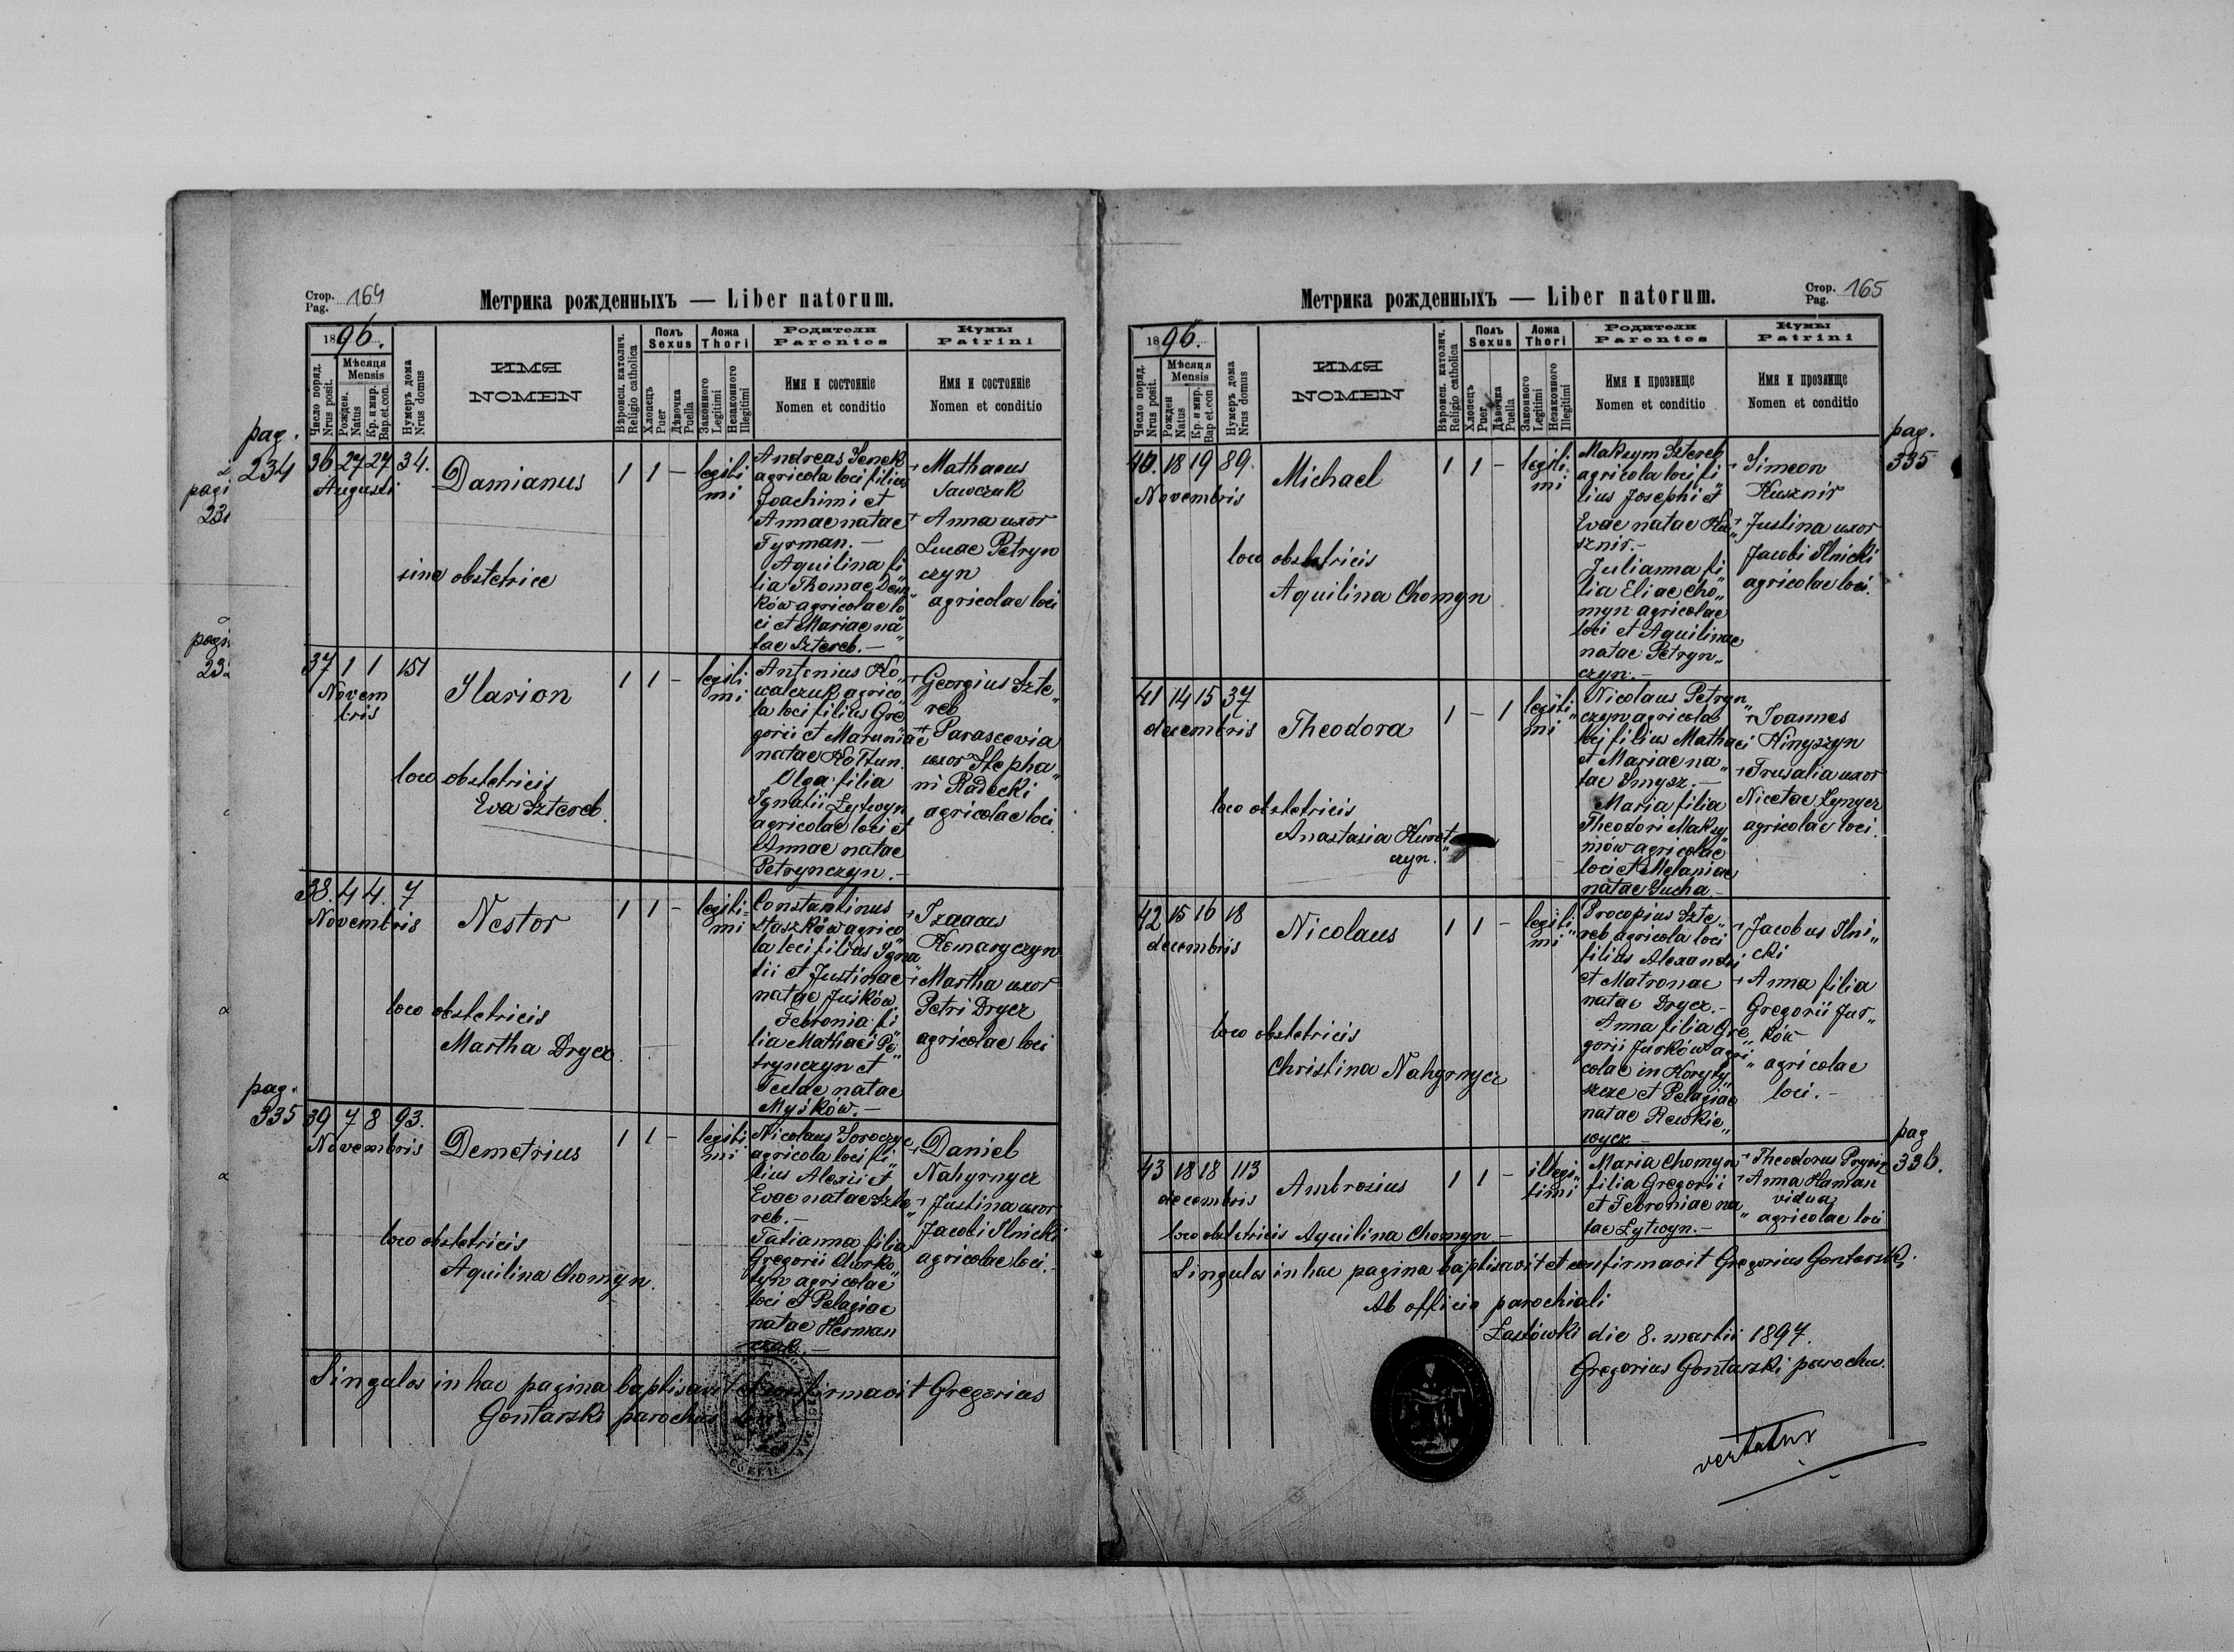 Стор.
Pag. 164
Метрика рожденныхъ — Liber natorum.
1896.
Число поряд.
Nrus posit.
Мѣсяця
Mensis
Рожден.
Natus
Кр. и мир.
Bap. et. con.
Нумеръ дома
Nrus domus
ИМЯ
NOMEN
Вѣроисп. католич.
Religio catholica
Полъ
Sexus
Хлопець
Puer
Дѣвочка
Puella
Ложа
Thori
Законного
Legitimi
Незаконного
Illegitimi
Родители
Parentes
Имя и состояніе
Nomen et conditio
Кумы
Patrini
Имя и состояніе
Nomen et conditio
pag.
234
36 27 27 34.
Augusti
Damianus
1 1 —
legiti
mi
Andreas Senek
agricola loci filius
Joachimi et
Annae natae
Fyrman. —
Aquilina fi„
lia Thomae Dem„
ków agricolae lo„
ci et Mariae na„
tae Sztereb. —
+ Mathaeus
Sawczuk
+ Anna uxor
Lucae Petryn
czyn
agricolae loci
sine obstetrice
37 1 1 151
Novem
bris
Ilarion
1 1 —
legiti
mi
Antonius Ko„
walczuk agrico„
la loci filius Gre„
gorii et Maruniae
natae Kołtun.
Olga filia
Ignatii Łytwyn
agricolae loci et
Annae natae
Petrynczyn. —
+ Georgius Szte„
reb
+ Parascevia
uxor Stepha„
ni Radecki
agricolae loci.
loco obstetricis
Eva Sztereb.
38. 4 4. 7
Novembris
Nestor
1 1 —
legiti=
mi
Constantinus
Staszków agrico„
la loci filius Igna„
tii et Justinae
natae Juśków.
Febronia fi„
lia Mathaei Pe„
trynczyn et
Teclae natae
Myśków. —
+ Izaacus
Komaryczyn
+ Martha uxor
Petri Drycz
agricolae loci
loco obstetricis
Martha Drycz.
pag.
335
39 7 8 93.
Novembris
Demetrius
1 1 —
legiti
mi
Nicolaus Soroczyc
agricola loci fi„
lius Alexii et
Evae natae Szte„
reb. —
Tatianna filia
Gregorii Chorko„
tyn agricolae
loci et Pelagiae
natae Herman
czuk. —
+ Daniel
Nahyrnycz
+ Justina uxor
Jacobi Ilnicki
agricolae loci. —
loco obstetricis
Aquilina Chomyn.
Singulos in hac pagina baptisavit et confirmavit Gregorius
Gontarski parochus
Стор.
Pag. 165
Метрика рожденныхъ — Liber natorum.
1896.
Число поряд.
Nrus posit.
Мѣсяця
Mensis
Рожден
Natus
Кр. и мир.
Bap et.con
Нумеръ дома
Nrus domus
ИМЯ
NOMEN
Вѣроисп. католич.
Religio catholica
Полъ
Sexus
Хлопець
Puer
Дѣвочка
Puella
Ложа
Thori
Законного
Legitimi
Незаконного
Illegitimi
Родители
Parentes
Имя и прозвище
Nomen et conditio
Кумы
Patrini
Имя и прозвище
Nomen et conditio
pag.
335
40. 18 19 89.
Novembris
Michael
1 1 —
legiti
mi
Maksym Sztereb
agricola loci fi„
lius Josephi et
Evae natae Ku„
sznir. —
Julianna fi„
lia Eliae Cho„
myn agricolae
loci et Aquilinae
natae Petryn„
czyn. —
+ Simeon
Kusznir
+ Justina uxor
Jacobi Ilnicki
agricolae loci.
loco obstetricis
Aquilina Chomyn
41 14 15 37
decembris
Theodora
1 — 1
legiti„
mi
Nicolaus Petryn„
czyn agricola
loci filius Mathaei
et Mariae na„
tae Smysz. —
Maria filia
Theodori Maksy„
mów agricolae
loci et Melaniae
natae Sucha. —
+ Joannes
Hinyszyn
+ Trusalia uxor
Nicetae Łynycz
agricolae loci.
loco obstetricis
Anastasia
czyn.
42 15 16 18
decembris
Nicolaus
1 1 —
legiti„
mi
Procopius Szte„
reb agricola loci
filius Alexandri
et Matronae
natae Drycz. —
Anna filia Gre„
gorii Jurków agri„
colae in Koryty„
szcze et Pelagiae
natae Rewkie„
wycz —
+ Jacobus Ilni„
cki
+ Anna filia
Gregorii Jur„
ków
agricolae
loci. —
loco obstetricis
Christina Nahyrnycz
pag
336.
43 18 18 113
decembris
Ambrosius
1 1 —
illegi„
timi
Maria Chomyn
filia Gregorii
et Febroniae na„
tae Łytwyn. —
+ Theodorus
+ Anna Haman
vidua
agricolae loci
loco obstetricis Aquilina Chomyn. —
Singulos in hac pagina baptisavit et confirmavit Gregorius Gontarski.
Ab officio parochiali
Łastówki die 8. martii 1897.
Gregorius Gontarski parochus.
vertatur